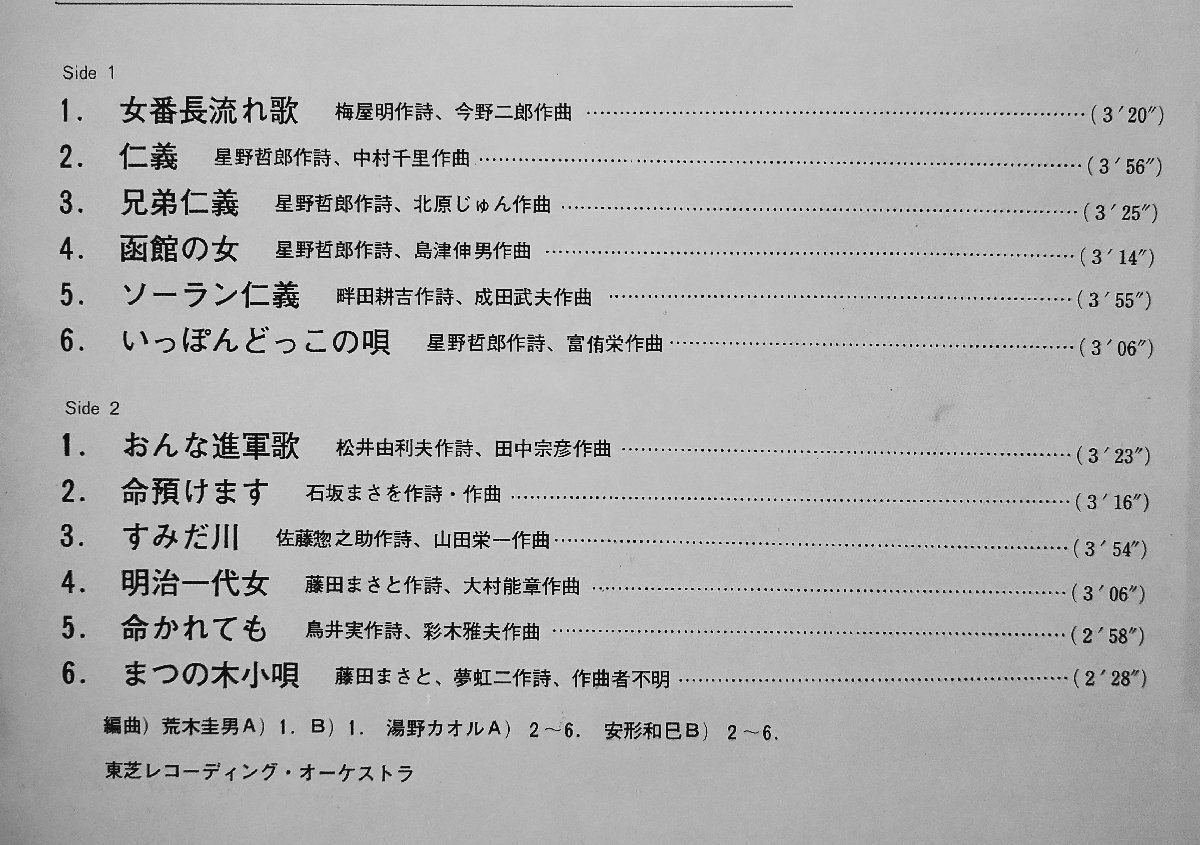 Side 1
1. 女番長流れ歌 梅屋明作詩、今野二郎作曲 ……(3′20″)
2. 仁義 星野哲郎作詩、中村千里作曲 ……(3′56″)
3. 兄弟仁義 星野哲郎作詩、北原じゅん作曲 ……(3′25″)
4. 函館の女 星野哲郎作詩、島津伸男作曲 ……(3′14″)
5. ソーラン仁義 畔田耕吉作詩、成田武夫作曲 ……(3′55″)
6. いっぽんどっこの唄 星野哲郎作詩、富侑栄作曲 ……(3′06″)
Side 2
1. おんな進軍歌 松井由利夫作詩、田中宗彦作曲 ……(3′23″)
2. 命預けます 石坂まさを作詩・作曲 ……(3′16″)
3. すみだ川 佐藤惣之助作詩、山田栄一作曲 ……(3′54″)
4. 明治一代女 藤田まさと作詩、大村能章作曲 ……(3′06″)
5. 命かれても 鳥井実作詩、彩木雅夫作曲 ……(2′58″)
6. まつの木小唄 藤田まさと、夢虹二作詩、作曲者不明 ……(2′28″)
編曲) 荒木圭男A) 1. B) 1. 湯野カオルA) 2〜6. 安形和巳B) 2〜6.
東芝レコーディング・オーケストラ